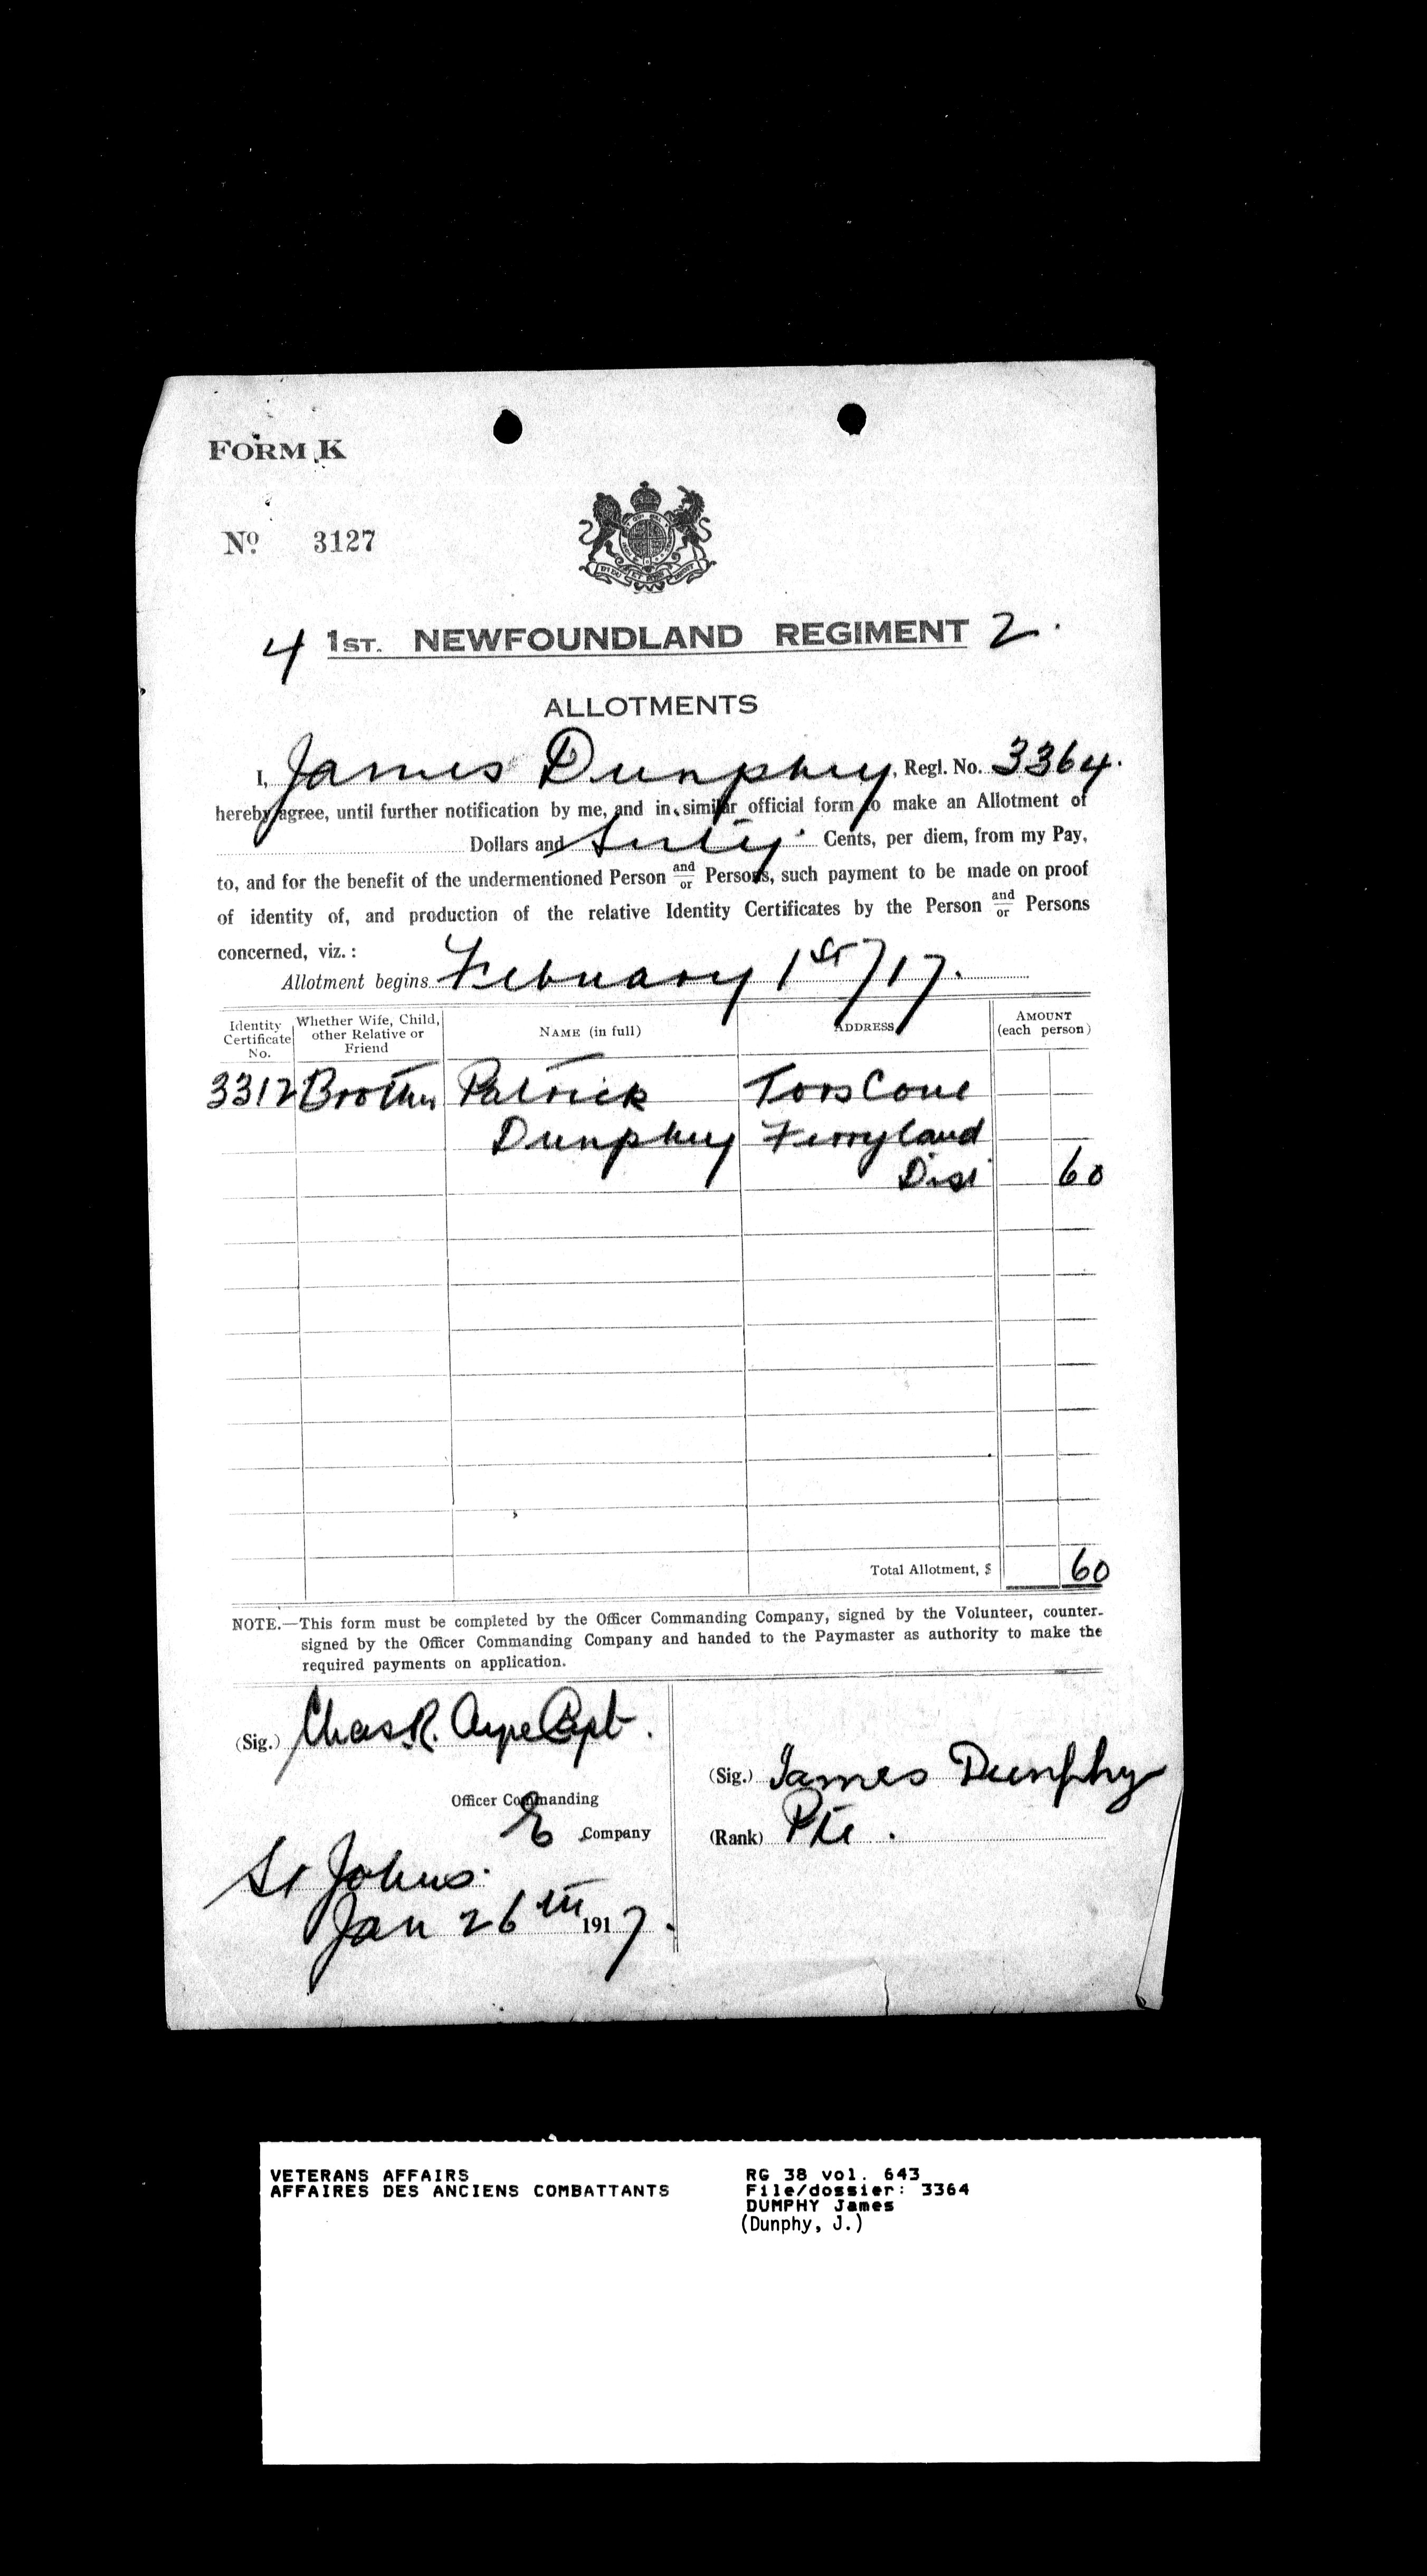 FORM K
No. 3127
4 1ST. NEWFOUNDLAND REGIMENT 2.
ALLOTMENTS
I, James Dunphy, Regl. No. 3364.
hereby agree, until further notification by me, and in similar official form to make an Allotment of
Dollars and Sixty Cents, per diem, from my Pay,
to, and for the benefit of the undermentioned Person and/or Persons, such payment to be made on proof
of identity of, and production of the relative Identity Certificates by the Person and/or Persons
concerned, viz.:
Allotment begins February 1st/17.
Identity Certificate No. Whether Wife, Child, other Relative or Friend NAME (in full) ADDRESS AMOUNT (each person)
3312 Brother Patrick Tors Cove
Dunphy Ferryland
Dist 60
Total Allotment, $ 60
NOTE.—This form must be completed by the Officer Commanding Company, signed by the Volunteer, counter-
signed by the Officer Commanding Company and handed to the Paymaster as authority to make the
required payments on application.
(Sig.) Chas. R. Ayre Capt.
Officer Commanding
E Company
St Johns.
Jan 26th 1917.
(Sig.) James Dunphy
(Rank) Pte.
VETERANS AFFAIRS
AFFAIRES DES ANCIENS COMBATTANTS
RG 38 vol. 643
File/dossier: 3364
DUMPHY James
(Dunphy, J.)